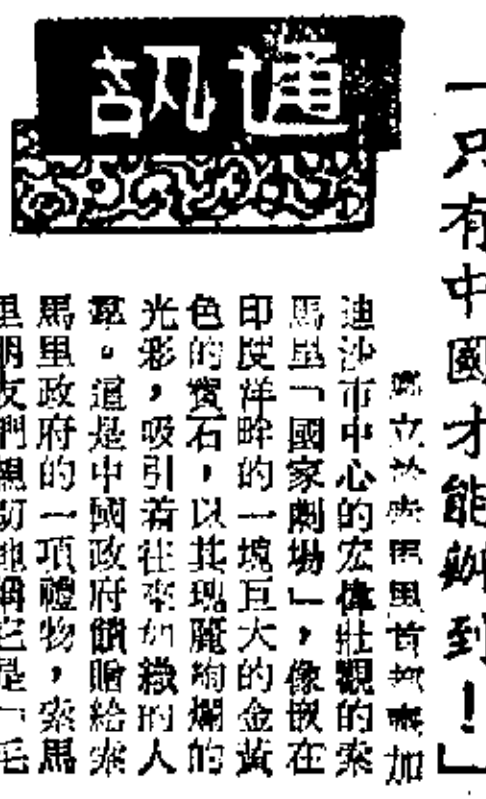 「只有中國才能辦到！」
通訊
矗立於索馬里首都摩加
迪沙市中心的宏偉壯觀的索
馬里「國家劇場」，像嵌在
印度洋畔的一塊巨大的金黃
色的寶石，以其瑰麗絢爛的
光彩，吸引着往來如織的人
羣。這是中國政府饋贈給索
馬里政府的一項禮物，索馬
里朋友們親切地稱它是「毛